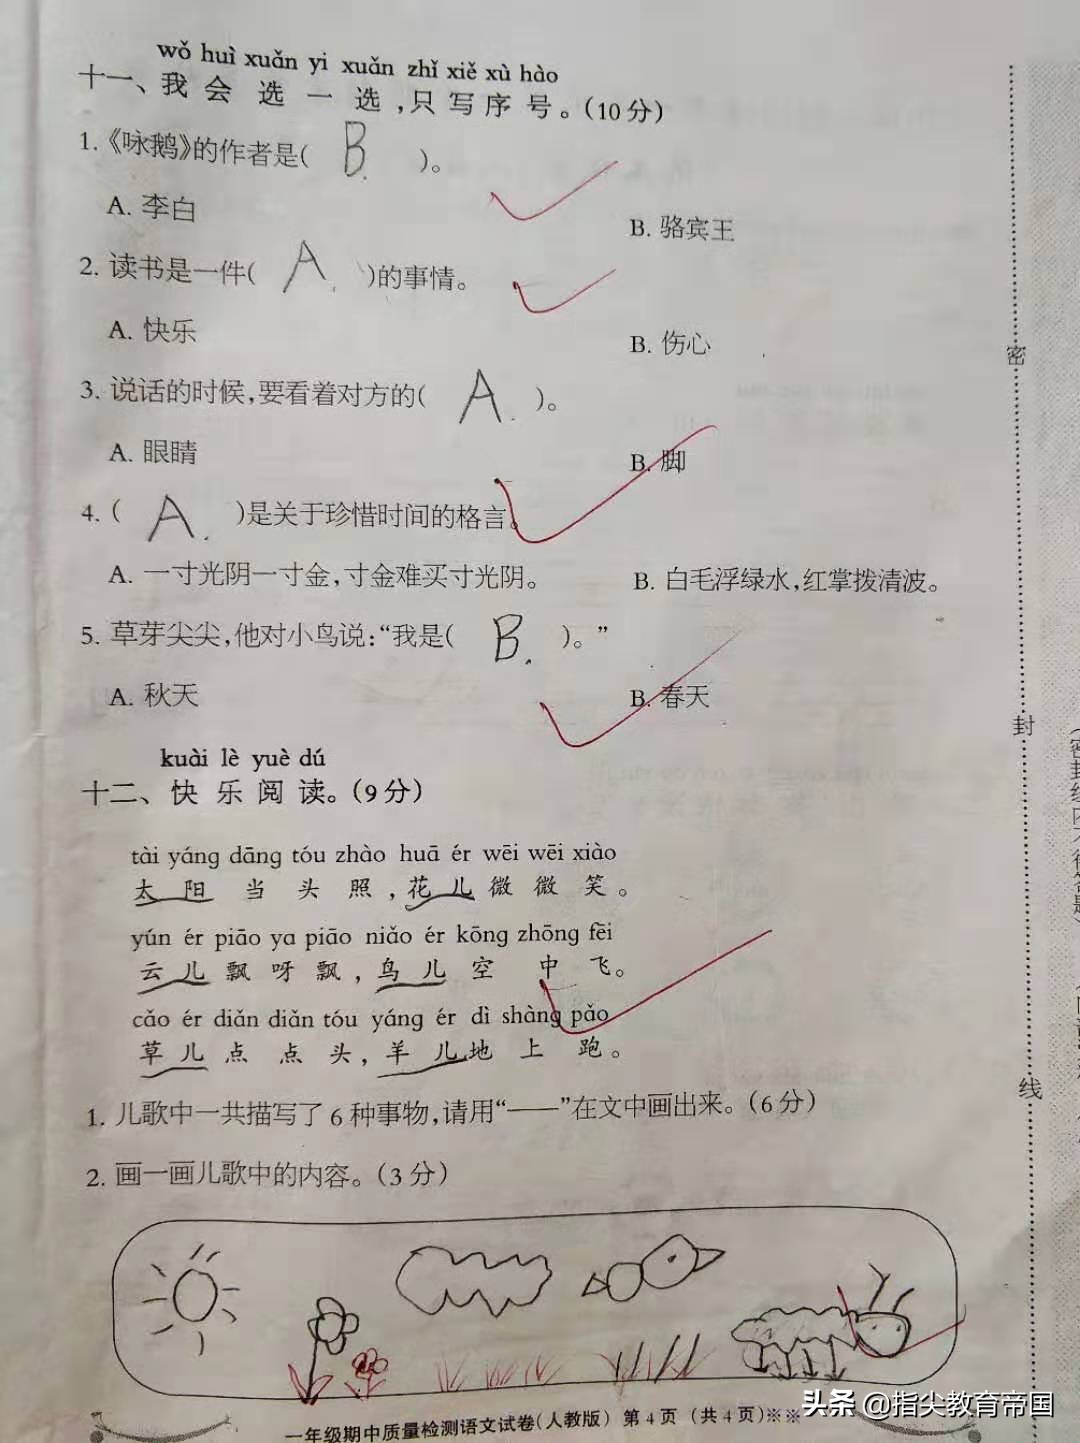 wǒ huì xuǎn yi xuǎn zhǐ xiě xù hào
十一、我会选一选,只写序号。(10分)
1.《咏鹅》的作者是( B )。
A. 李白 B. 骆宾王
2. 读书是一件( A )的事情。
A. 快乐 B. 伤心
3. 说话的时候,要看着对方的( A )。
A. 眼睛 B. 脚
4. ( A )是关于珍惜时间的格言。
A. 一寸光阴一寸金,寸金难买寸光阴。 B. 白毛浮绿水,红掌拨清波。
5. 草芽尖尖,他对小鸟说:“我是( B )。”
A. 秋天 B. 春天
kuài lè yuè dú
十二、快乐阅读。(9分)
tài yáng dāng tóu zhào huā ér wēi wēi xiào
太阳当头照,花儿微微笑。
yún ér piāo ya piāo niǎo ér kōng zhōng fēi
云儿飘呀飘,鸟儿空中飞。
cǎo ér diǎn diǎn tóu yáng ér dì shàng pǎo
草儿点点头,羊儿地上跑。
1. 儿歌中一共描写了6种事物,请用“——”在文中画出来。(6分)
2. 画一画儿歌中的内容。(3分)
一年级期中质量检测语文试卷(人教版) 第4页 (共4页)※※
密
封
线
头条 @指尖教育帝国